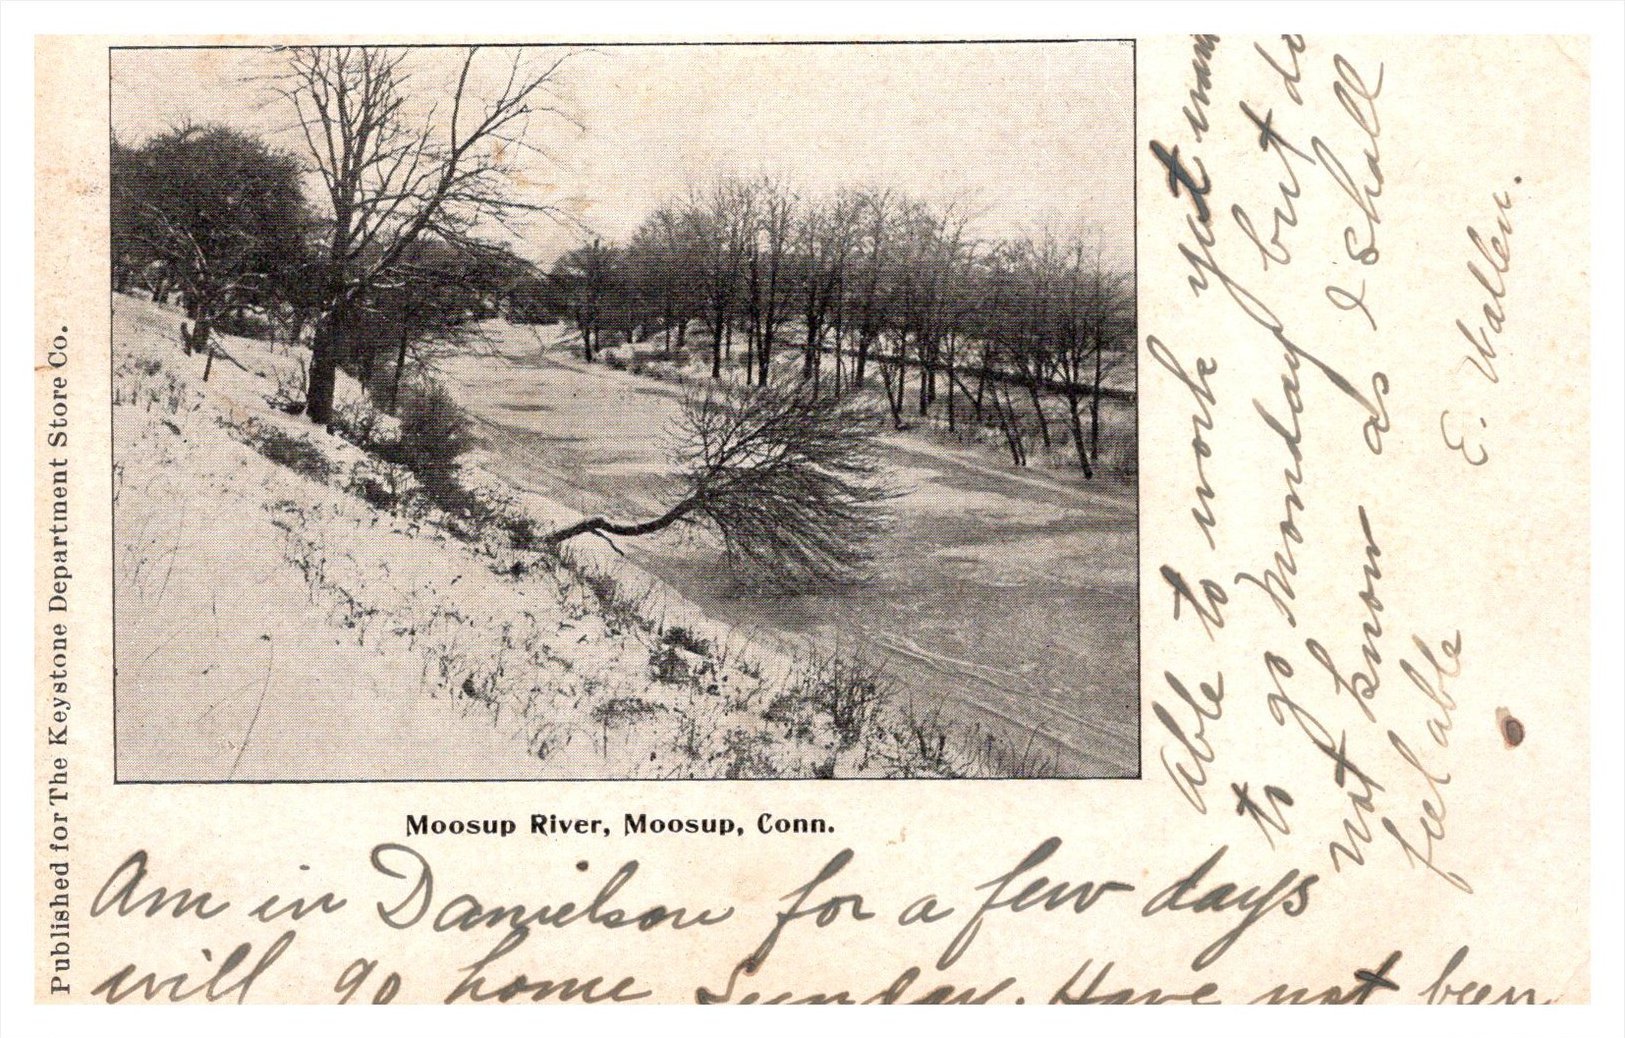 Published for The Keystone Department Store Co.
Moosup River, Moosup, Conn.
Am in Danielson for a few days
will go home Sunday. Have not been
able to work yet
to go Monday but do
not know as I shall
feel able
E. Wallen.